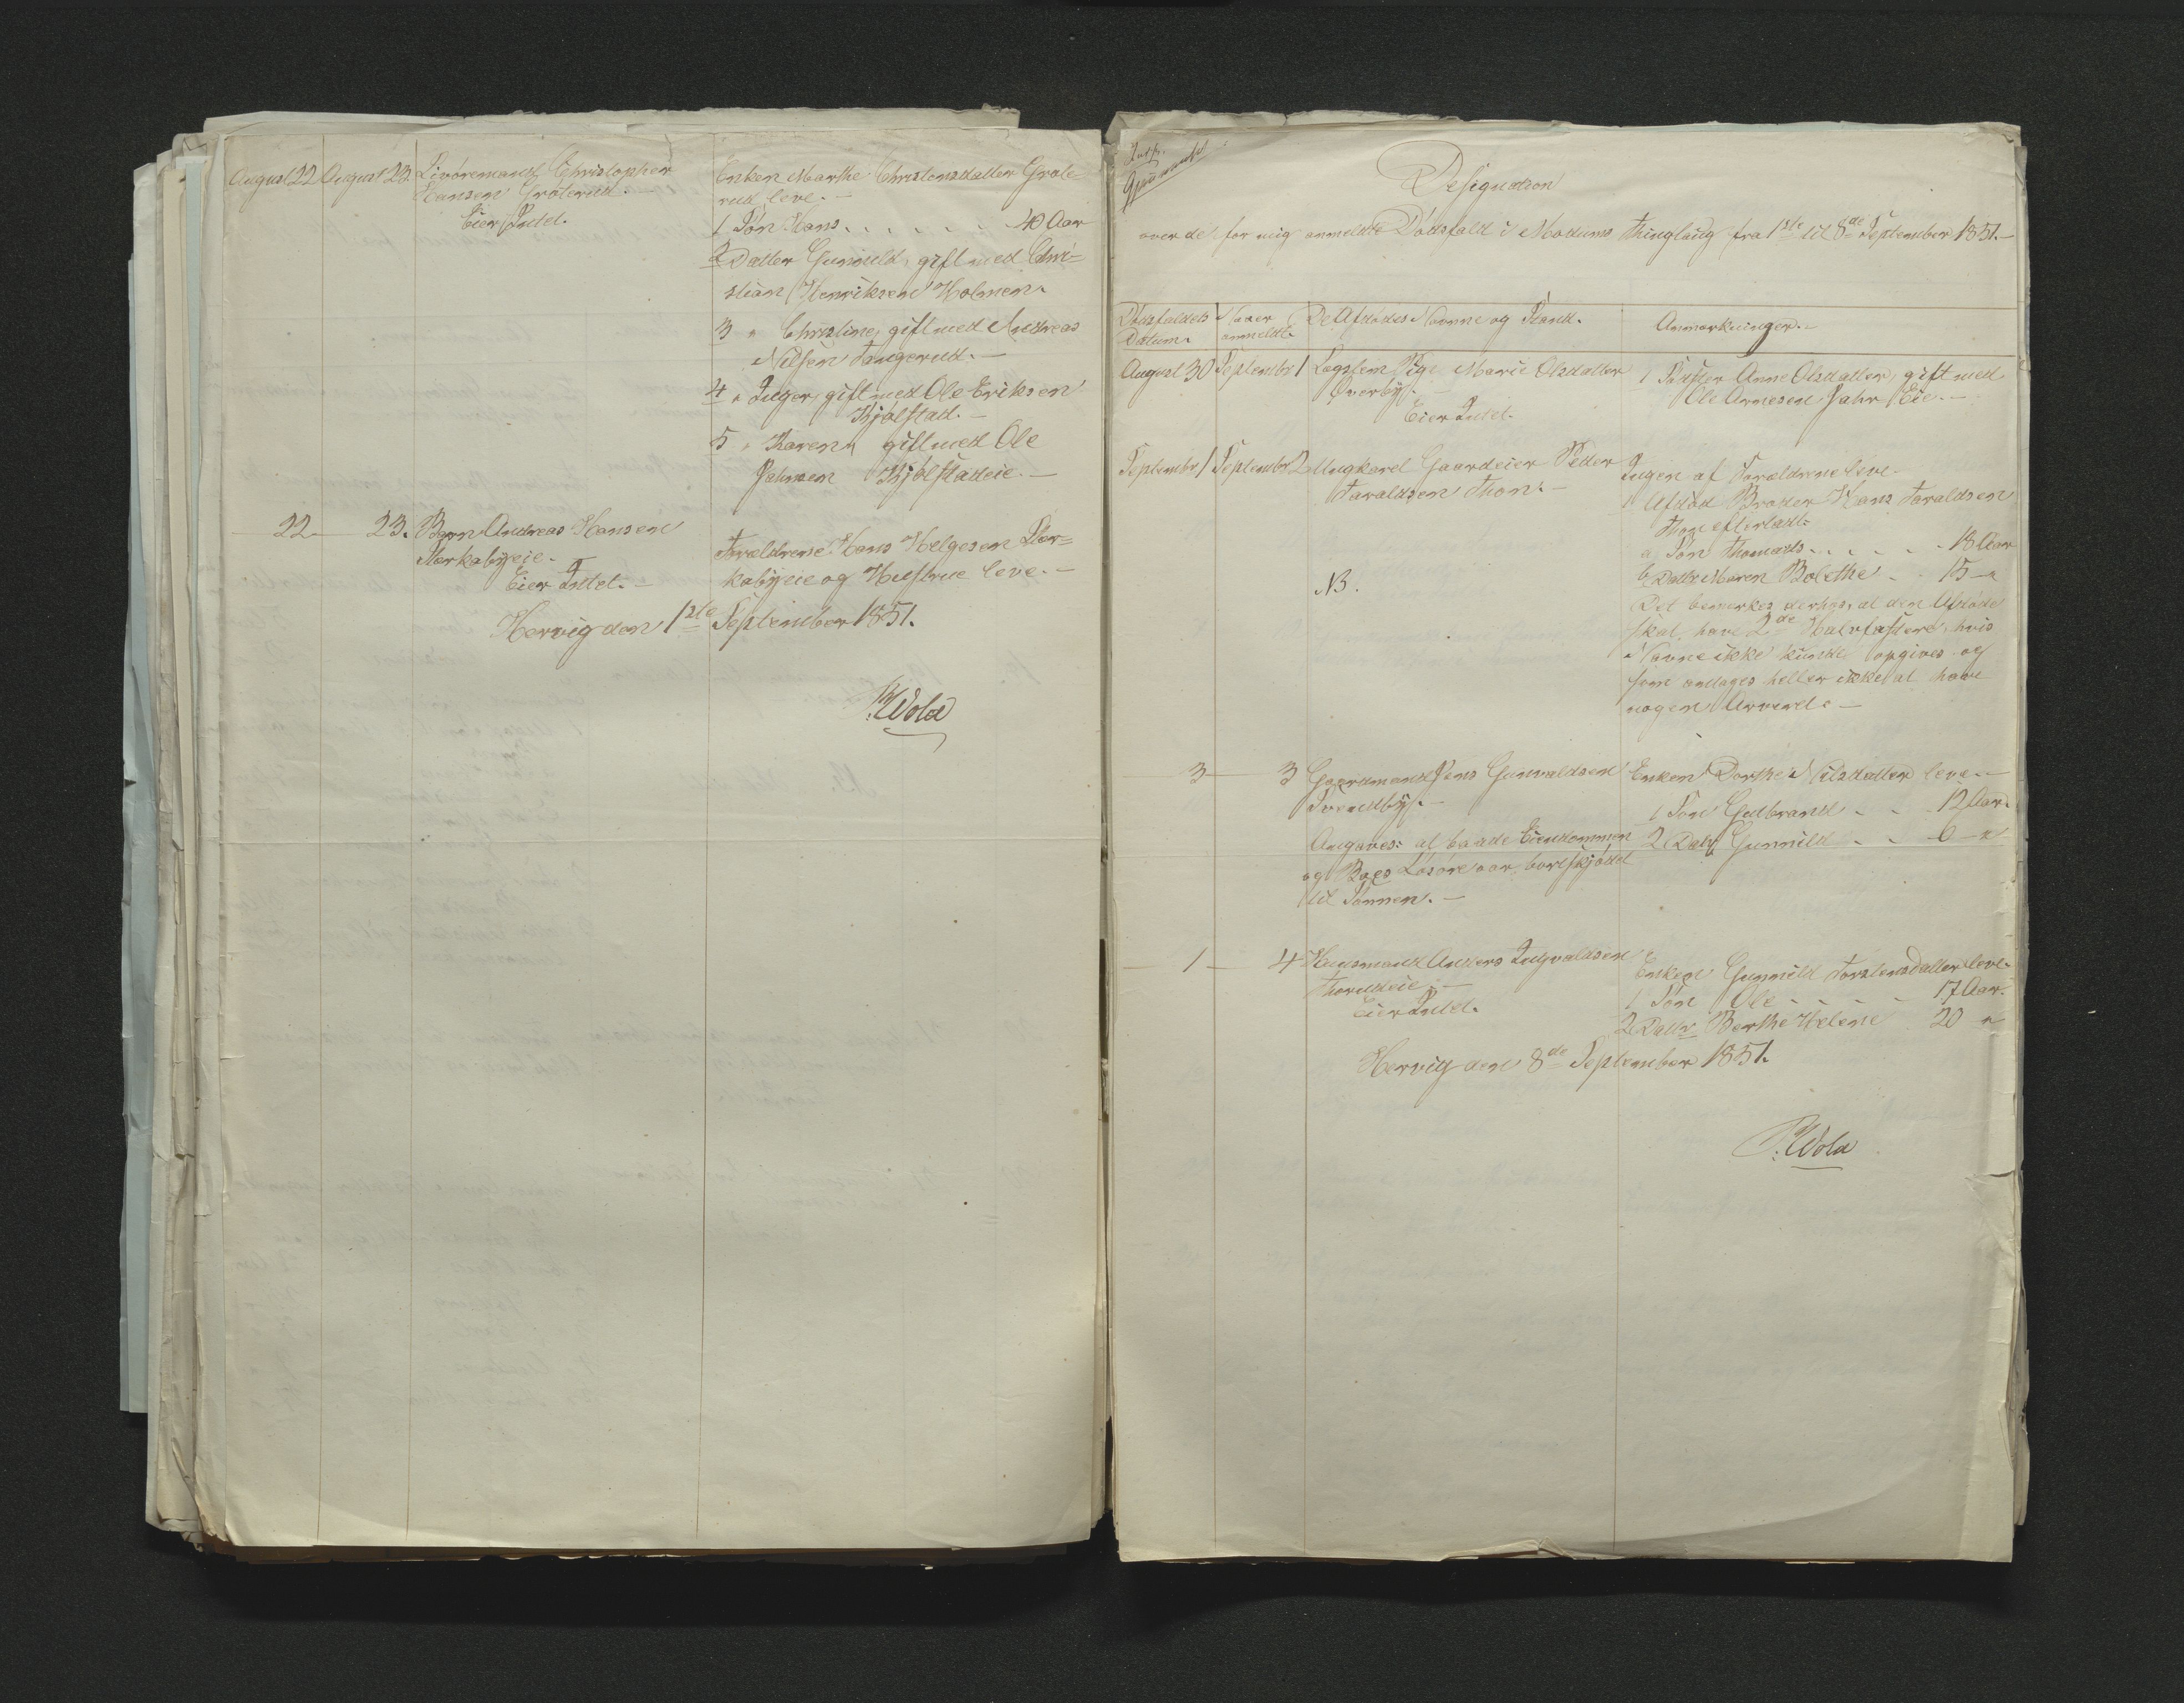 August 22 August 23 Livøremand Christopher
Hansen Grøterud.
Eier Intet.
Enken Marthe Christensdatter Grøte-
rud leve. —
1 Søn Hans . . . . . . 40 Aar
2 Datter Gunnild, gift med Chri=
stian Henriksen Holmen.
3 " Christine, gift med Andreas
Nilsen Tangerud. —
4 " Inger, gift med Ole Eriksen
Kjølstad. —
5 " Karen, gift med Ole
Jahnsen Kjølstadeie. —
22 — 23. Barn Andreas Hansen
Størkabyeie. —
Eier Intet. —
Forældrene Hans Helgesen Stør=
kabyeie og Hustrue leve. —
Hervig den 1ste September 1851.
P. Wold
Designation
over de for mig anmeldte Dødsfald i Modums Thinglaug fra 1ste til 8de September 1851. —
Dødsfaldets Datum.
Naar anmeldt.
De Afdødes Navne og Stand.
Anmærkninger. —
August 30 Septembr 1 Lægslem Pige Marie Olsdatter
Overby. —
Eier Intet.
1 Søster Anne Olsdatter, gift med
Ole Arnesen Fahr Eie. —
Septembr 1 Septembr 2 Ungkarl Gaardeier Peder
Taraldsen Thon. —
NB.
Ingen af Forældrene leve.
1 Afdød Broder Hans Taraldsen
Thon efterladt:
a Søn Thomas . . . . . 18 Aar
b Dattr Maren Bolethe . . 15 — "
Det bemærkes derhos, at den Afdøde
skal have 2de Halvsøstere, hvis
Navne ikke kunde opgives og
som antages heller ikke at have
nogen Arveret. —
3 — 3 Gaardmand Jens Gunvaldsen
Svendby. —
Angaves: at baade Eiendommen
og Boes Løsøre var bortskjødet
til Sønnen. —
Enken Dorthe Nilsdatter leve. —
1 Søn Gulbrand . . 12 Aar.
2 Dattr Gunnild . . 6 — "
1 — 4 Huusmand Anders Ingvaldsen
Thorudeie. —
Eier Intet.
Enken Gunnild Torstensdatter leve.
1 Søn Ole . . . . 17 Aar.
2 Dattr Berthe Helene 20 "
Hervig den 8de September 1851.
P. Wold